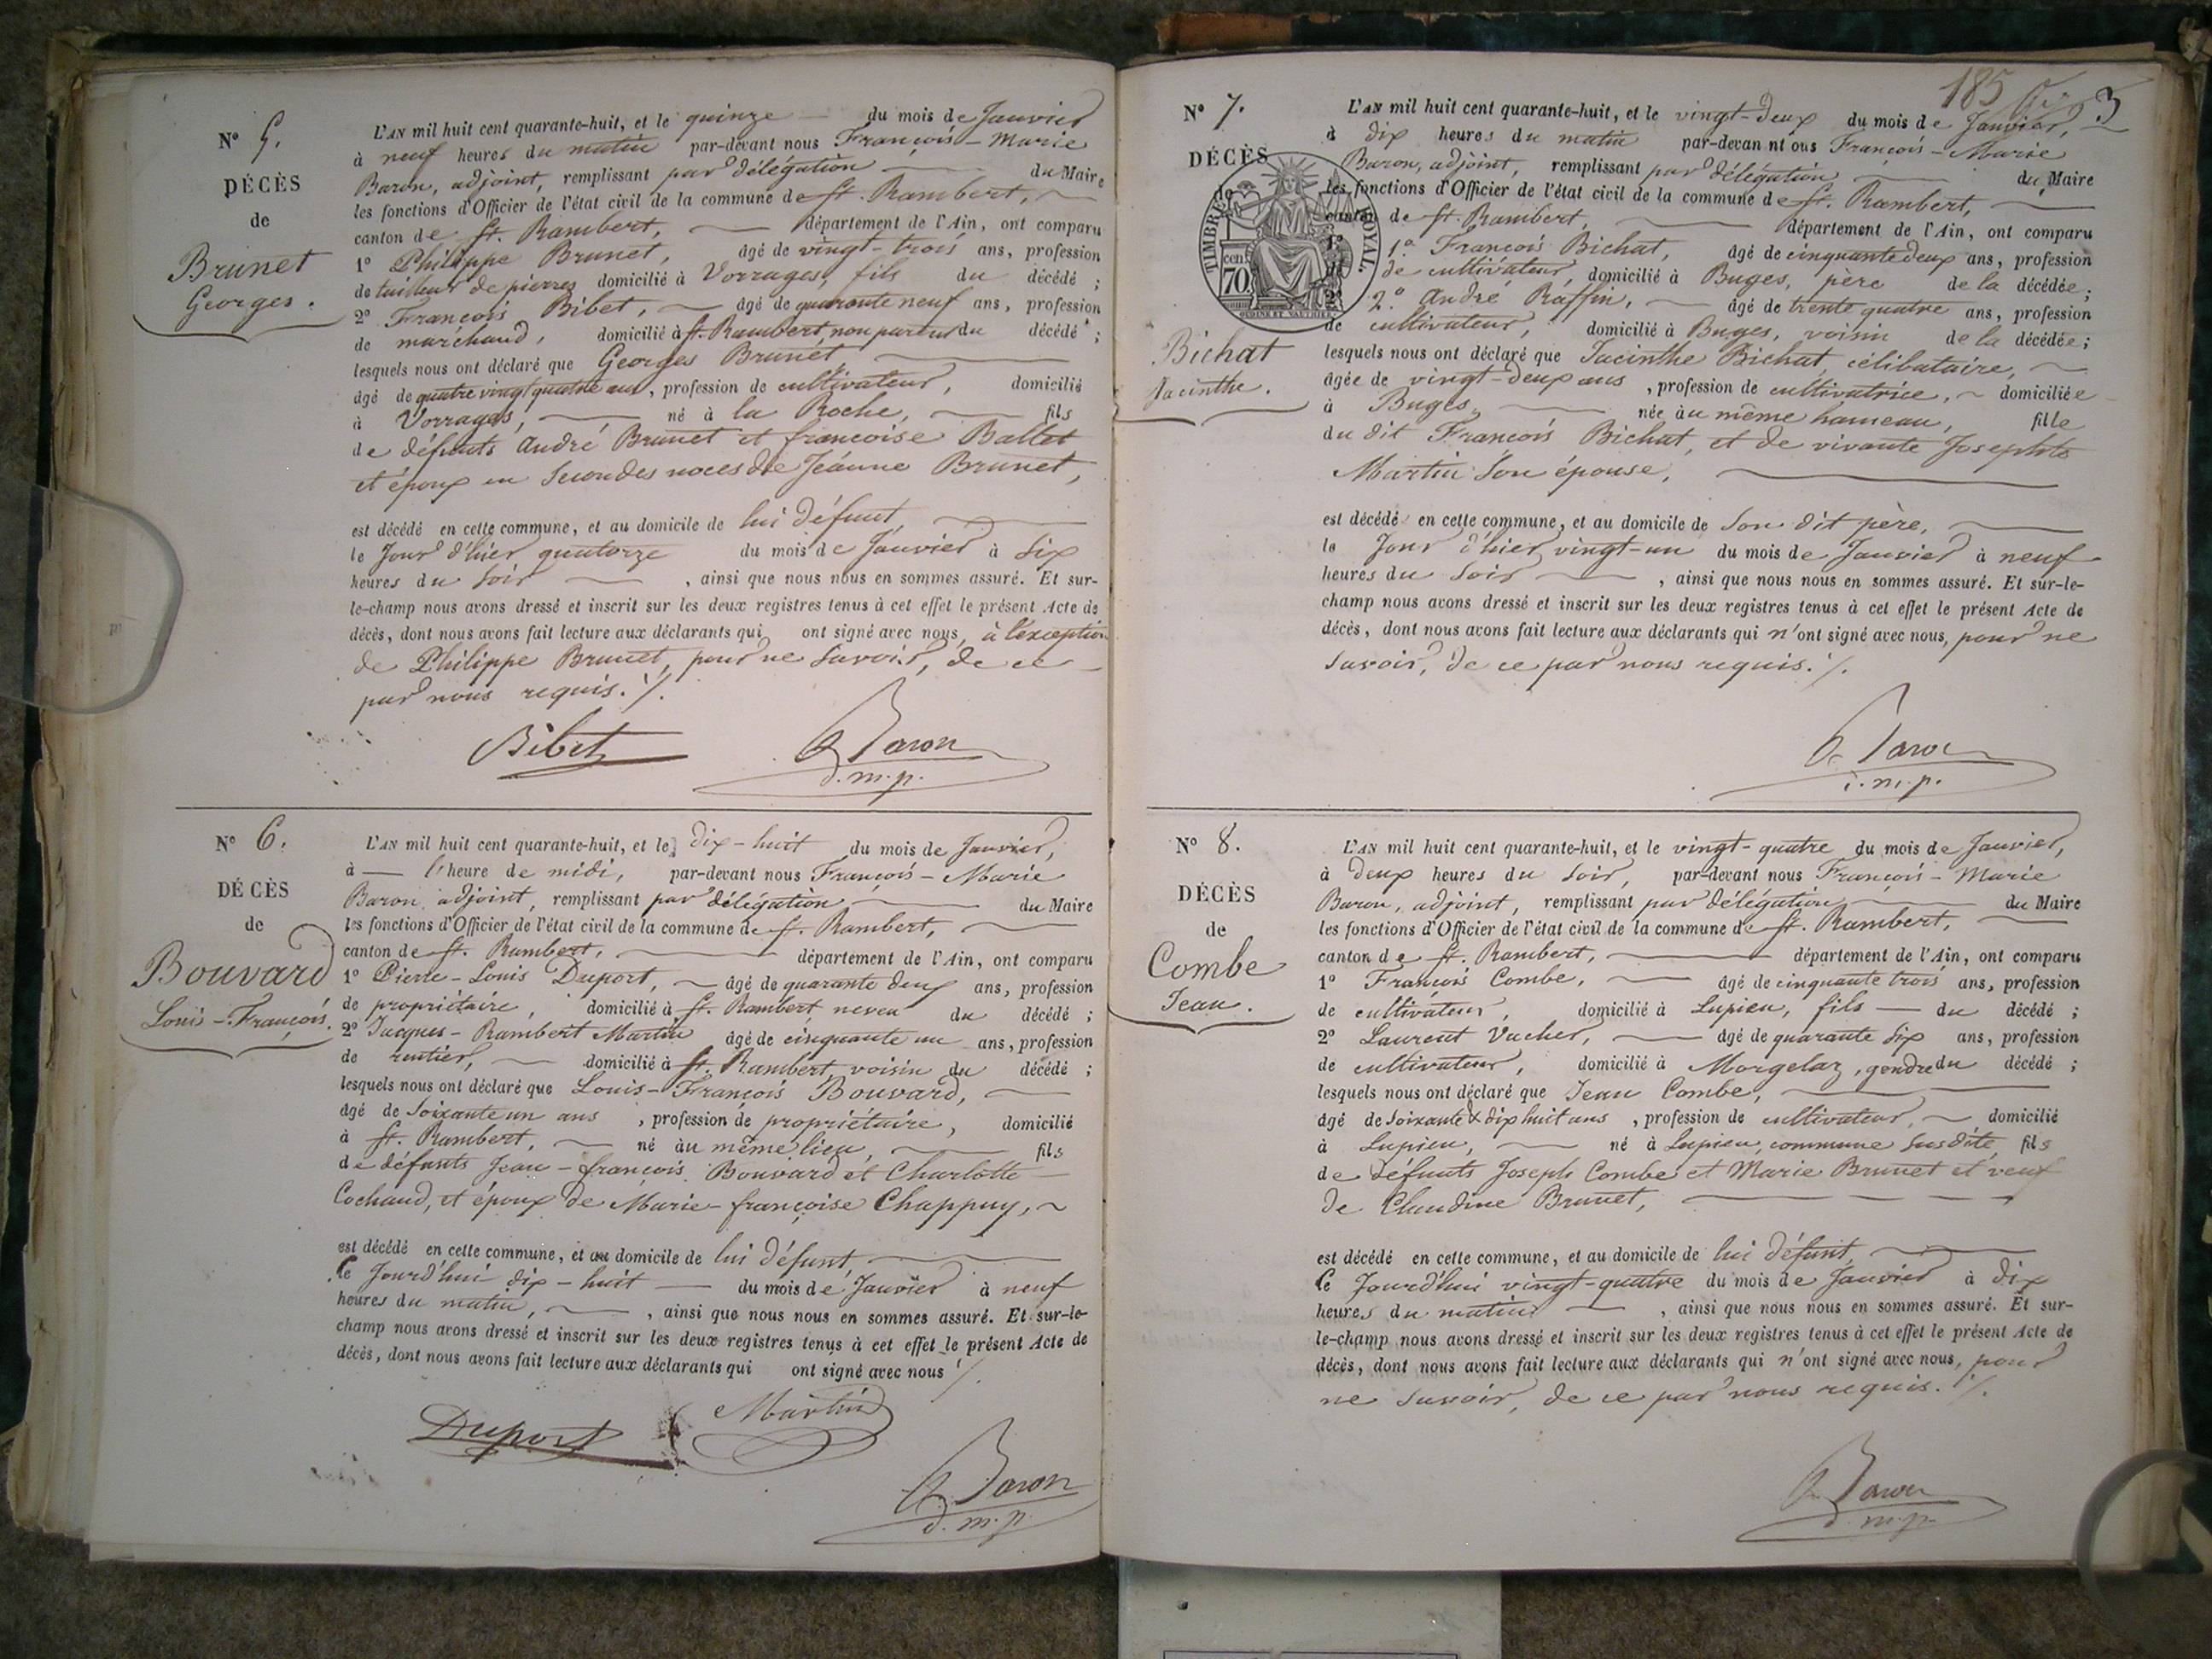 N° 5.
DÉCÈS
de
Brunet
Georges.
L'AN mil huit cent quarante-huit, et le quinze du mois de Janvier
à neuf heures du matin par-devant nous François-Marie
Baron, adjoint, remplissant par délégation du Maire
les fonctions d'Officier de l'état civil de la commune de St. Rambert,
canton de St. Rambert, département de l'Ain, ont comparu
1° Philippe Brunet, âgé de vingt-trois ans, profession
de tailleur de pierres domicilié à Vorrages, fils du décédé ;
2° François Bibet, âgé de quarante neuf ans, profession
de marchand, domicilié à St. Rambert, non parent du décédé ;
lesquels nous ont déclaré que Georges Brunet,
âgé de quatre vingt quatre ans, profession de cultivateur, domicilié
à Vorrages, né à la Roche, fils
de défunts André Brunet et françoise Ballet
et époux en secondes noces de Jeanne Brunet,
est décédé en cette commune, et au domicile de lui défunt,
le Jour d'hier quatorze du mois de Janvier à six
heures du soir , ainsi que nous nous en sommes assuré. Et sur-
le-champ nous avons dressé et inscrit sur les deux registres tenus à cet effet le présent Acte de
décès, dont nous avons fait lecture aux déclarants qui ont signé avec nous, à l'exception
de Philippe Brunet, pour ne savoir, de ce
par nous requis. ./.
Bibet Baron
d.m.p.
N° 6.
DÉCÈS
de
Bouvard
Louis-François.
L'AN mil huit cent quarante-huit, et le dix-huit du mois de Janvier,
à l'heure de midi, par-devant nous François-Marie
Baron adjoint, remplissant par délégation du Maire
les fonctions d'Officier de l'état civil de la commune de St. Rambert,
canton de St. Rambert, département de l'Ain, ont comparu
1° Pierre-Louis Duport, âgé de quarante deux ans, profession
de propriétaire, domicilié à St. Rambert neveu du décédé ;
2° Jacques-Rambert Martin âgé de cinquante un ans, profession
de rentier, domicilié à St. Rambert, voisin du décédé ;
lesquels nous ont déclaré que Louis-François Bouvard,
âgé de soixante un ans , profession de propriétaire, domicilié
à St. Rambert, né au même lieu, fils
de défunts Jean-françois Bouvard et Charlotte
Cochaud, et époux de Marie-françoise Chappuy,
est décédé en cette commune, et au domicile de lui défunt,
le Jourd'hui dix-huit du mois de Janvier à neuf
heures du matin, , ainsi que nous nous en sommes assuré. Et sur-le-
champ nous avons dressé et inscrit sur les deux registres tenus à cet effet le présent Acte de
décès, dont nous avons fait lecture aux déclarants qui ont signé avec nous ./.
Duport Martin
Baron
d.m.p.
185 3
N° 7.
DÉCÈS
de
TIMBRE ROYAL.
70 cen
Bichat
Jacinthe.
L'AN mil huit cent quarante-huit, et le vingt-deux du mois de Janvier,
à dix heures du matin par-devan nt ous François-Marie
Baron, adjoint, remplissant par délégation du Maire
les fonctions d'Officier de l'état civil de la commune de St. Rambert,
canton de St. Rambert, département de l'Ain, ont comparu
1° François Bichat, âgé de cinquante deux ans, profession
de cultivateur, domicilié à Buges, père de la décédée ;
2° André Raffin, âgé de trente quatre ans, profession
de cultivateur, domicilié à Buges, voisin de la décédée ;
lesquels nous ont déclaré que Jacinthe Bichat, célibataire,
âgée de vingt-deux ans , profession de cultivatrice, domiciliée
à Buges, née au même hameau, fille
du dit François Bichat, et de vivante Josephte
Martin son épouse,
est décédé en cette commune, et au domicile de son dit père,
le Jour d'hier vingt-un du mois de Janvier à neuf
heures du soir , ainsi que nous nous en sommes assuré. Et sur-le-
champ nous avons dressé et inscrit sur les deux registres tenus à cet effet le présent Acte de
décès, dont nous avons fait lecture aux déclarants qui n'ont signé avec nous, pour ne
savoir, de ce par nous requis. ./.
Baron
d.m.p.
N° 8.
DÉCÈS
de
Combe
Jean.
L'AN mil huit cent quarante-huit, et le vingt-quatre du mois de Janvier,
à deux heures du soir, par-devant nous François-Marie
Baron, adjoint, remplissant par délégation du Maire
les fonctions d'Officier de l'état civil de la commune de St. Rambert,
canton de St. Rambert, département de l'Ain, ont comparu
1° François Combe, âgé de cinquante trois ans, profession
de cultivateur, domicilié à Lupieu, fils du décédé ;
2° Laurent Vacher, âgé de quarante six ans, profession
de cultivateur, domicilié à Morgelaz, gendre du décédé ;
lesquels nous ont déclaré que Jean Combe,
âgé de soixante & dix huit ans , profession de cultivateur, domicilié
à Lupieu, né à Lupieu, commune susdite, fils
de défunts Joseph Combe et Marie Brunet et veuf
de Claudine Brunet,
est décédé en cette commune, et au domicile de lui défunt,
le Jourd'hui vingt-quatre du mois de Janvier à dix
heures du matin , ainsi que nous nous en sommes assuré. Et sur-
le-champ nous avons dressé et inscrit sur les deux registres tenus à cet effet le présent Acte de
décès, dont nous avons fait lecture aux déclarants qui n'ont signé avec nous, pour
ne savoir, de ce par nous requis. ./.
Baron
d.m.p.